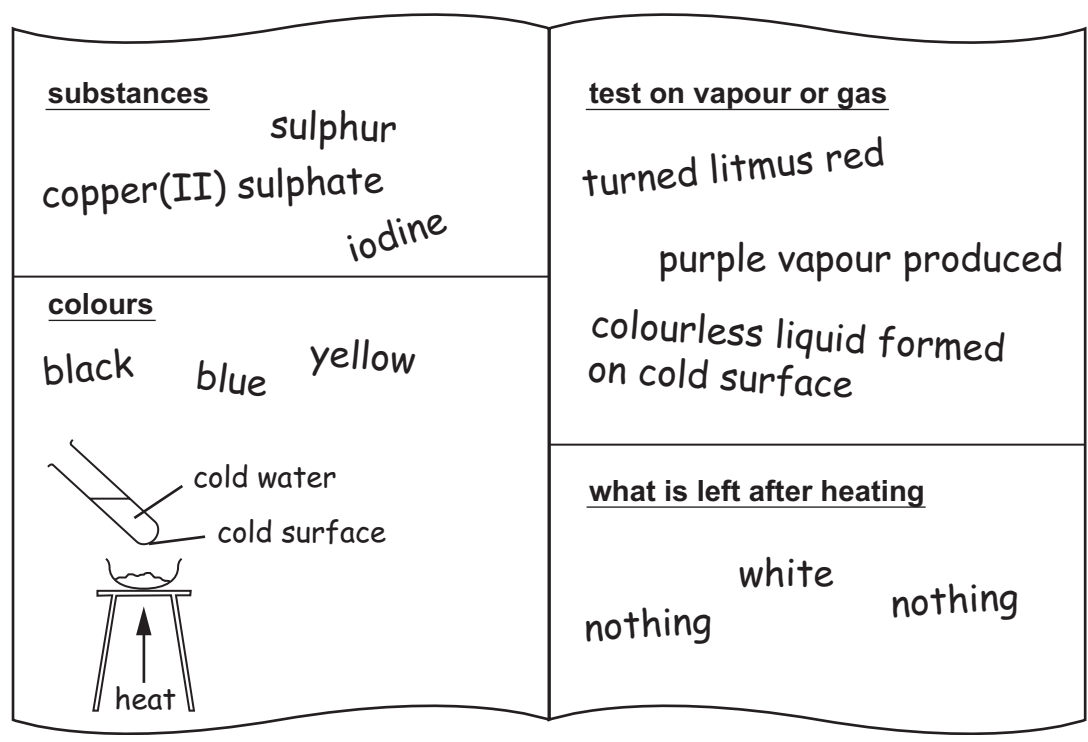 substances
sulphur
copper(II) sulphate
iodine
colours
black
blue
yellow
cold water
cold surface
heat
test on vapour or gas
turned litmus red
purple vapour produced
colourless liquid formed
on cold surface
what is left after heating
white
nothing
nothing